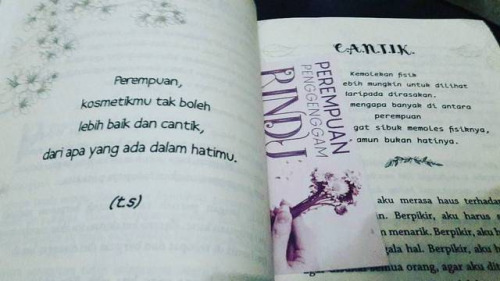 Perempuan,
kosmetikmu tak boleh
lebih baik dan cantik,
dari apa yang ada dalam hatimu.
(ts)
PEREMPUAN
PENGGENGGAM
RINDU
CANTIK.
Kemolekan fisik
ebih mungkin untuk dilihat
daripada dirasakan.
mengapa banyak di antara
perempuan
gat sibuk memoles fisiknya,
amun bukan hatinya.
aku merasa haus terhadap
n. Berpikir, aku harus
n menarik. Berpikir, aku h
gala hal. Berpikir, aku ha
mua orang, agar aku dit